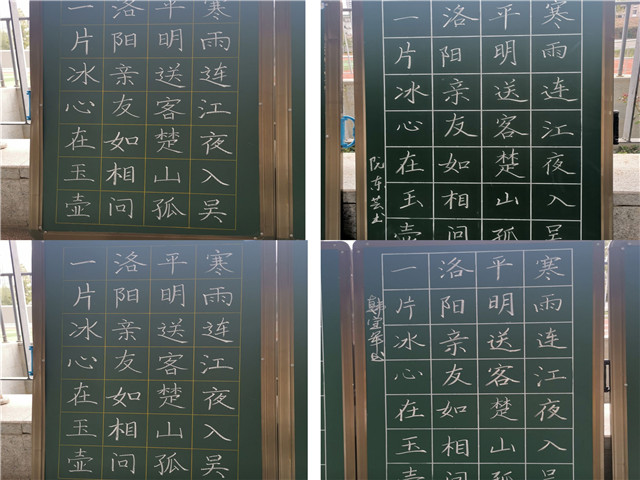 寒雨连江夜入吴
平明送客楚山孤
洛阳亲友如相问
一片冰心在玉壶
寒雨连江夜入吴
平明送客楚山孤
洛阳亲友如相问
一片冰心在玉壶
阮东芸书
寒雨连江夜入吴
平明送客楚山孤
洛阳亲友如相问
一片冰心在玉壶
寒雨连江夜入吴
平明送客楚山孤
洛阳亲友如相问
一片冰心在玉壶